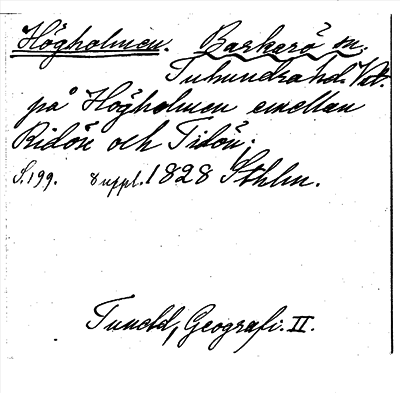 Högholmen. Barkarö sn.
Tuhundra hd. Vstm.
på Högholmen emellan
Ridön och Tidön.
S. 199. 8 uppl. 1828 Sthlm.
Tuneld, Geografi. II.